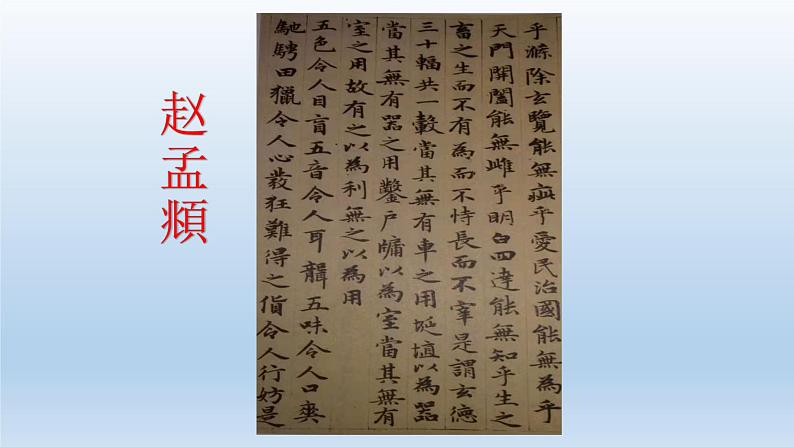 赵孟頫
乎滌除玄覽能無疵乎愛民治國能無為乎
天門開闔能無雌乎明白四達能無知乎生之
畜之生而不有為而不恃長而不宰是謂玄德
三十輻共一轂當其無有車之用埏埴以為器
當其無有器之用鑿戶牖以為室當其無有
室之用故有之以為利無之以為用
五色令人目盲五音令人耳聾五味令人口爽
馳騁田獵令人心發狂難得之貨令人行妨是